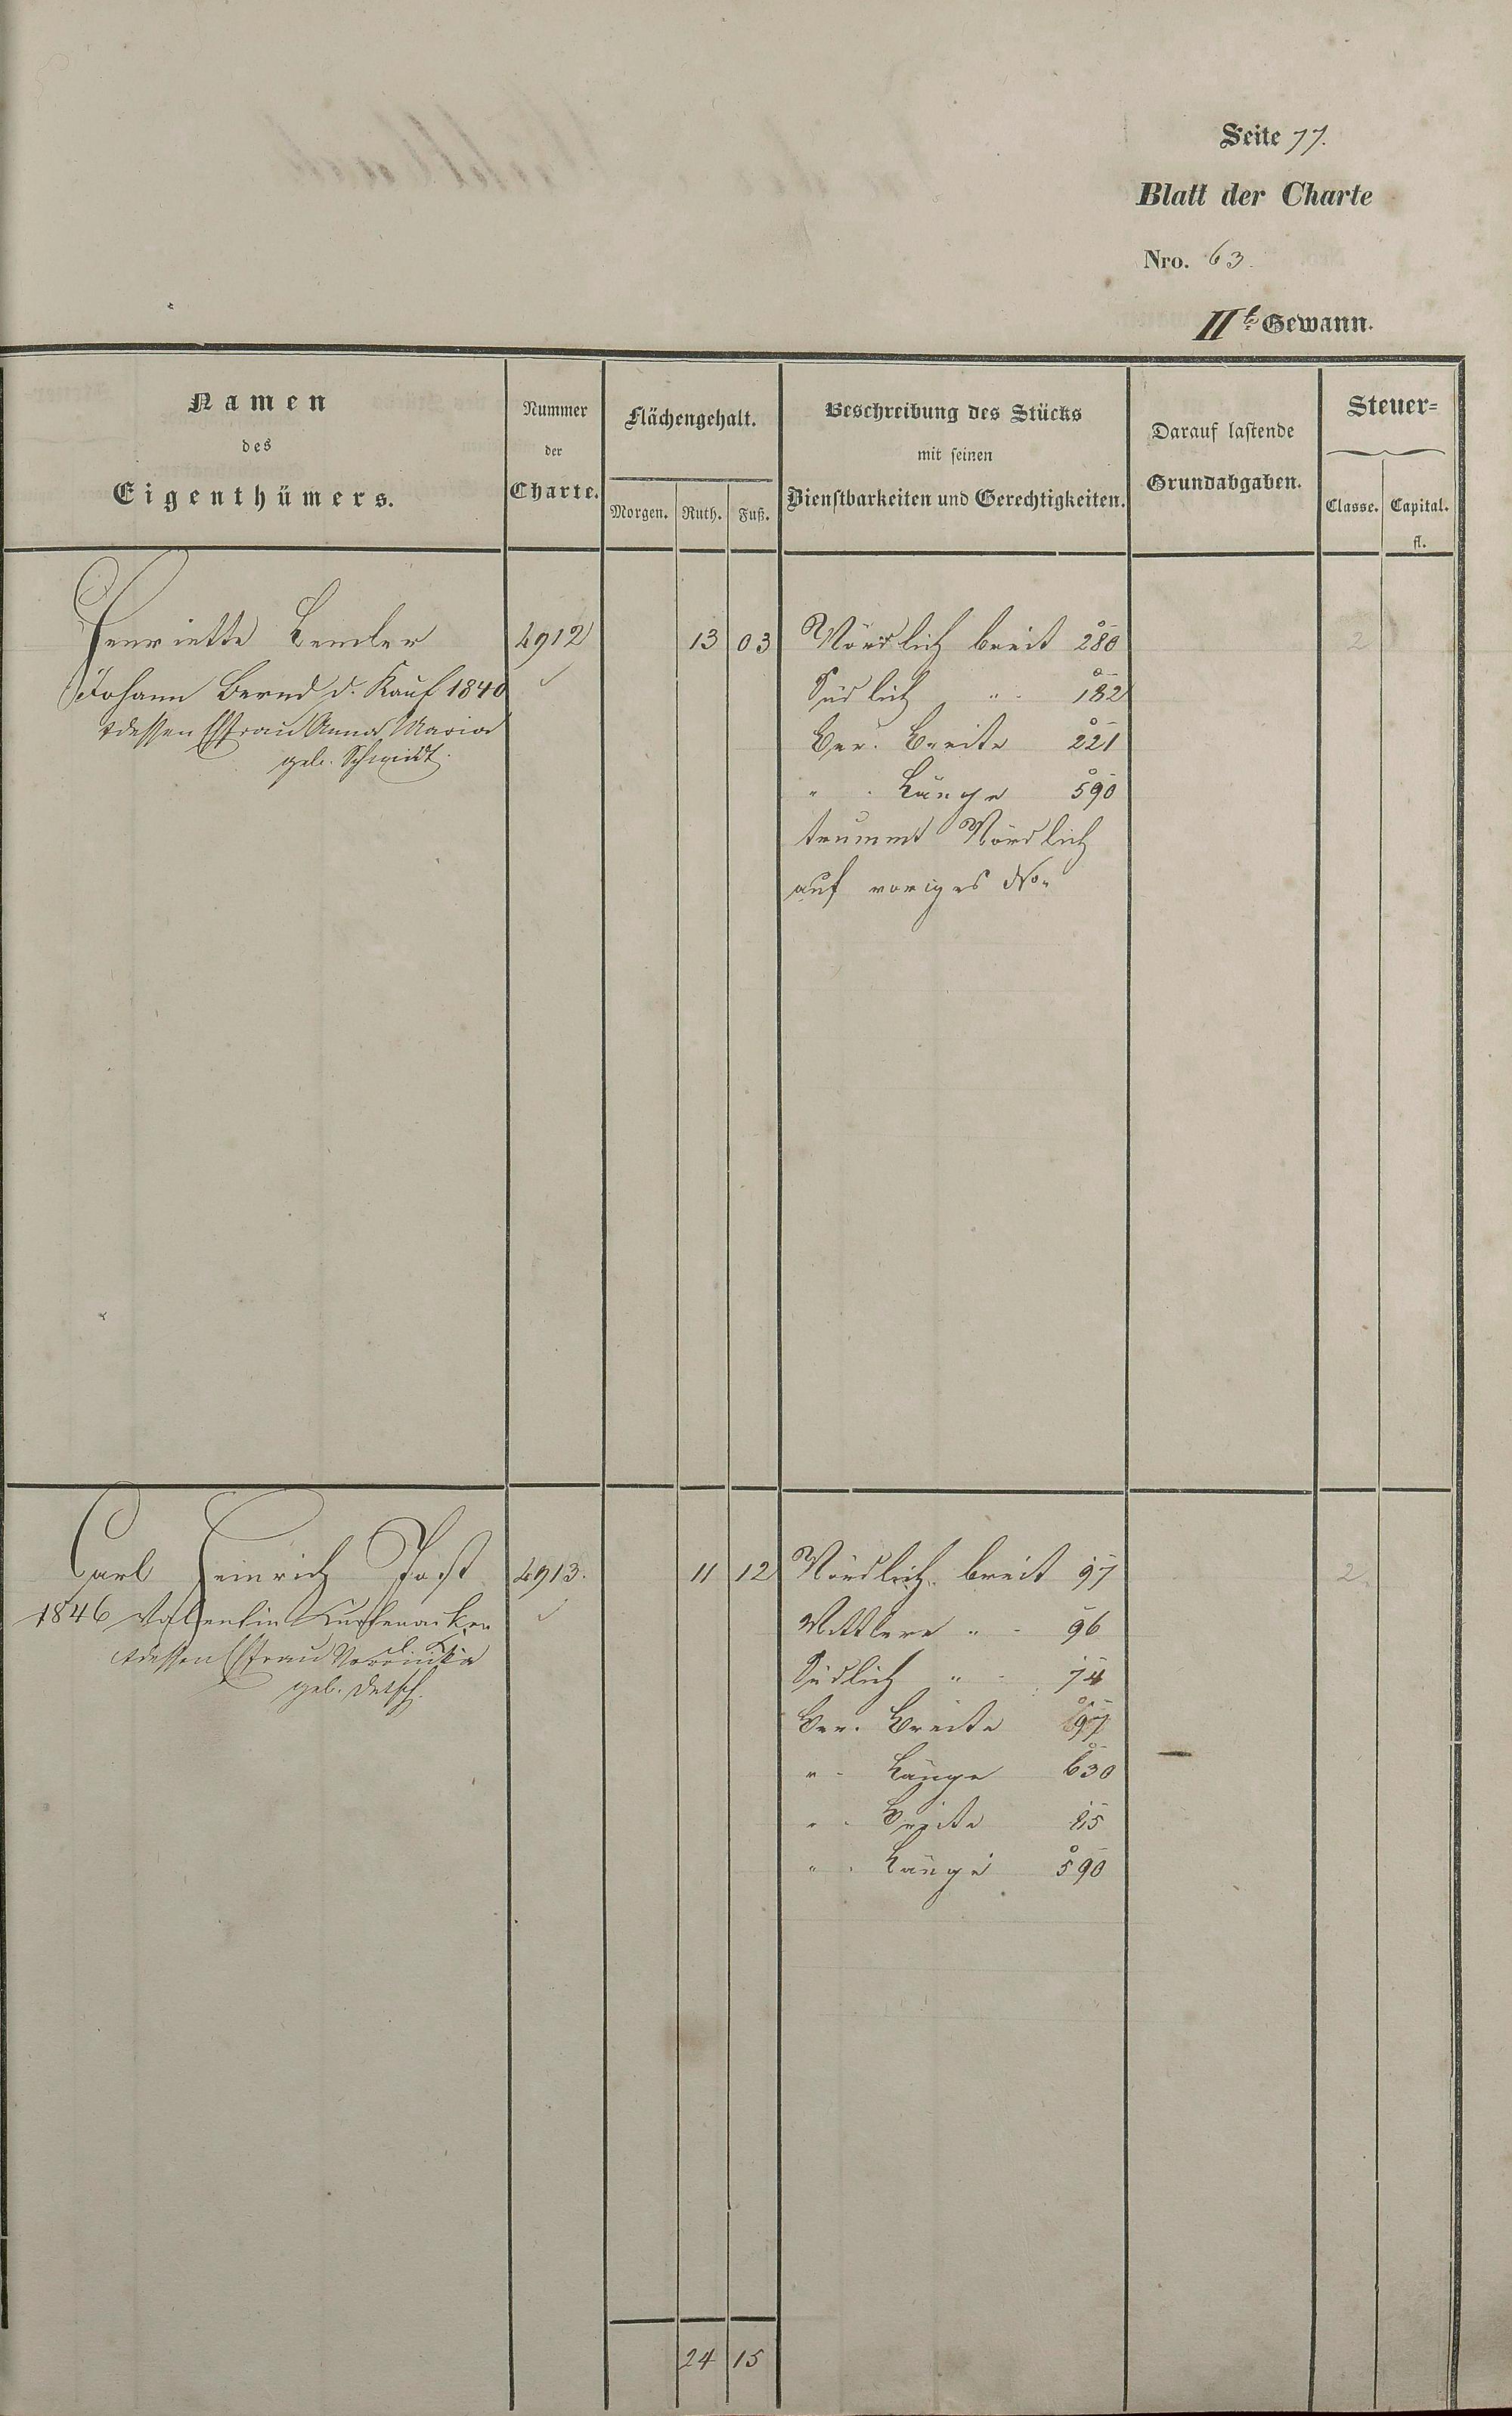 Seite 77.
Blatt der Charte
Nro. 63.
IIte Gewann.
Namen
des
Eigenthümers.
Nummer
der
Charte.
Flächengehalt.
Morgen. Ruth. Fuß.
Beschreibung des Stücks
mit seinen
Dienstbarkeiten und Gerechtigkeiten.
Darauf lastende
Grundabgaben.
Steuer=
Classe. Capital.
fl.
Henriette Bender 4912 13 03 Nördlich breit 280 2
Johann Bernd d. Kauf 1840 Südlich " 182
& dessen Ehfrau Anna Maria Ber. Breite 221
geb. Schmidt.
" . Länge 590
trummt Nördlich
auf voriges No.
Carl Heinrich Post 4913. 11 12 Nördlich breit 97 2
1846 Valentin Mittlere " 96
& dessen Ehfrau Südlich " 74
geb.
Ber. Breite 97
" Länge 630
" . Breite 85
" . Länge 590
24 15